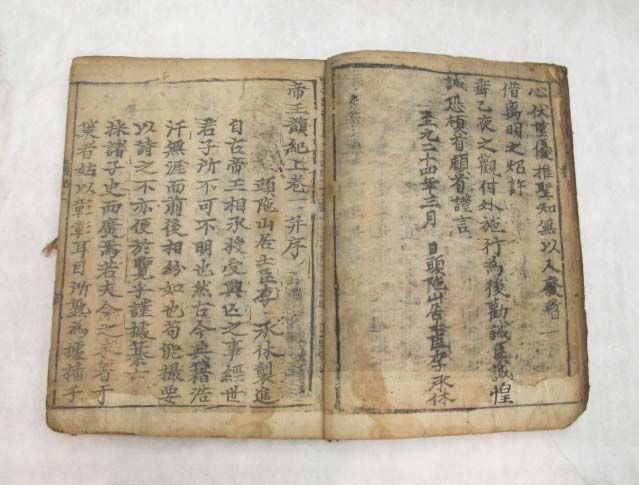 心伏望優推聖知無以人廢輕
借离明之炤許
垂乙夜之觀付外施行為後勸誡臣誠惶
誠恐頓首頓首謹言
至元二十四年三月 日頭陁山居士臣李承休
帝王韻紀上卷一并序
頭陁山居士臣李 承休製進
自古帝王相承授受興亡之事經世
君子所不可不明也然古今典籍浩
汗無涯而前後相紛如也苟能撮要
以詩之不亦便於覽乎謹據
採諸子史而廣焉若夫今之未著于
策者姑以彰彰耳目所熟為據播于